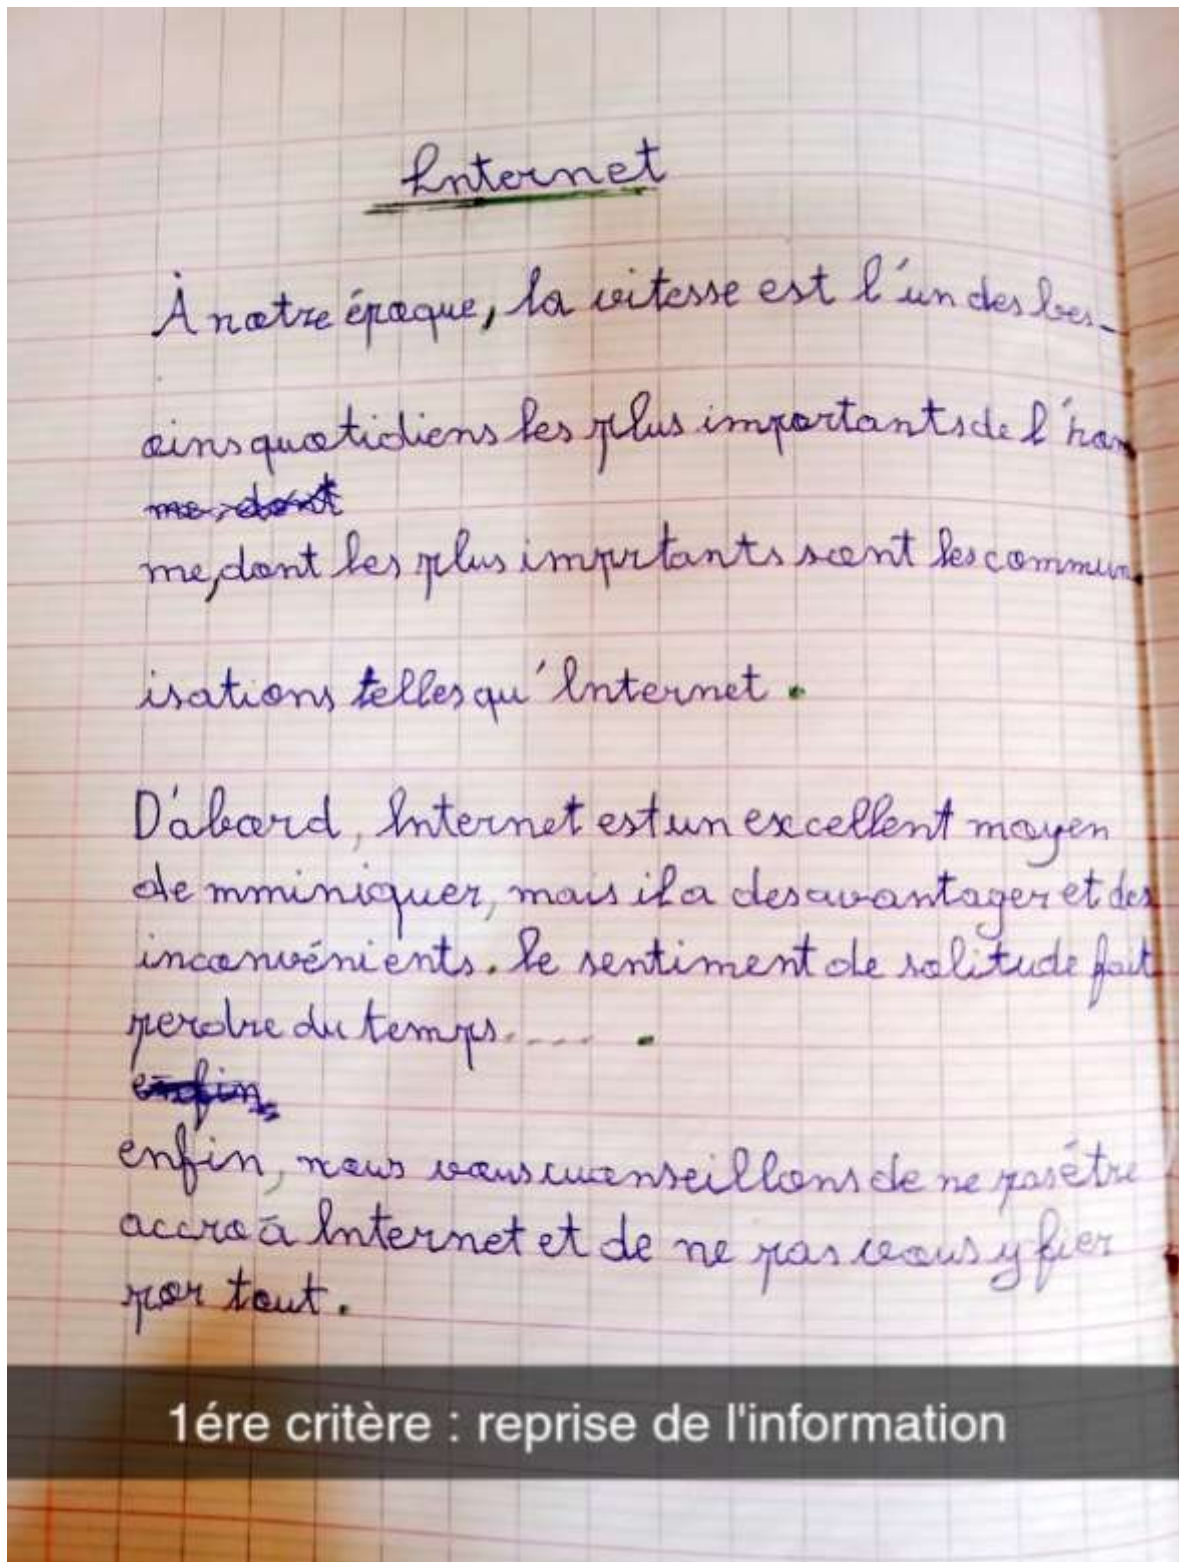 Internet
À notre époque, la vitesse est l'un des bes-
oins quotidiens les plus importants de l'hom
me, dont
me, dont les plus imprtants sont les commun
isations telles qu'Internet.
D'abord, Internet est un excellent moyen
de mminiquer, mais il a des avantager et des
inconvénients. le sentiment de solitude fait
perdre du temps.....
enfin,
enfin, nous vous cuonseillons de ne pas être
accro à Internet et de ne pas vous y fier
por tout.
1ére critère : reprise de l'information